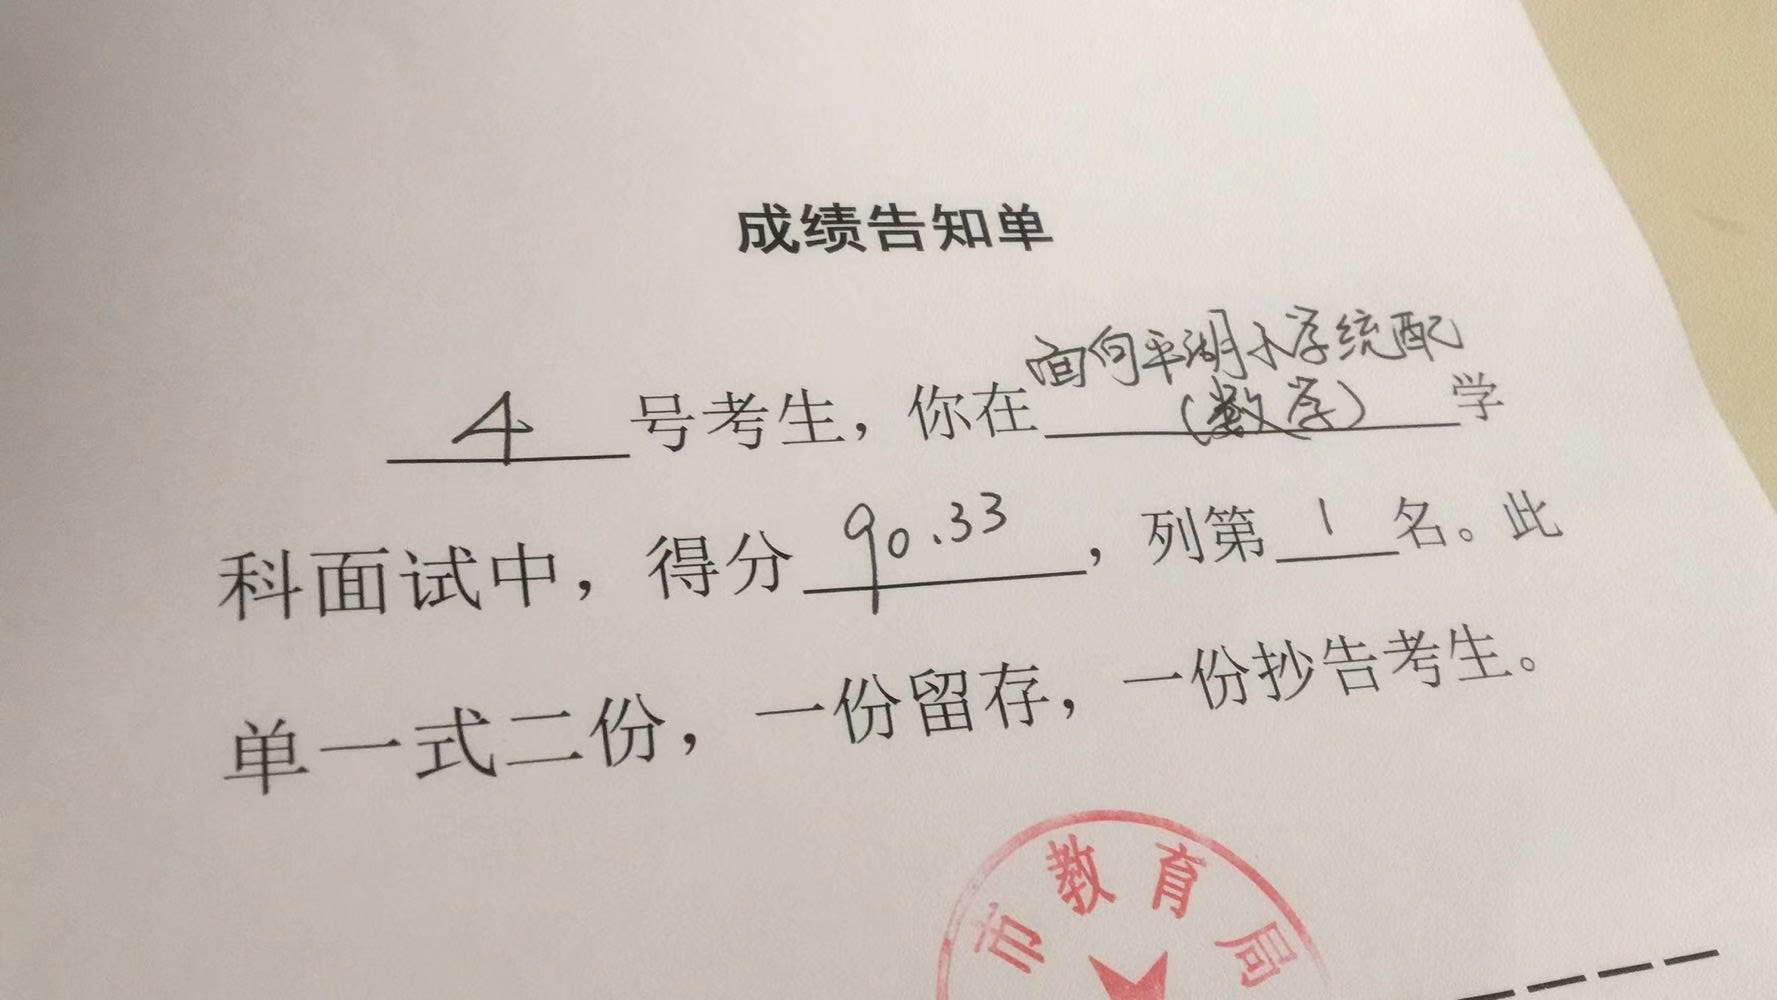 成绩告知单
面向平湖小学统配
4 号考生，你在（数学）学
科面试中，得分 90.33 ，列第 1 名。此
单一式二份，一份留存，一份抄告考生。
市教育局